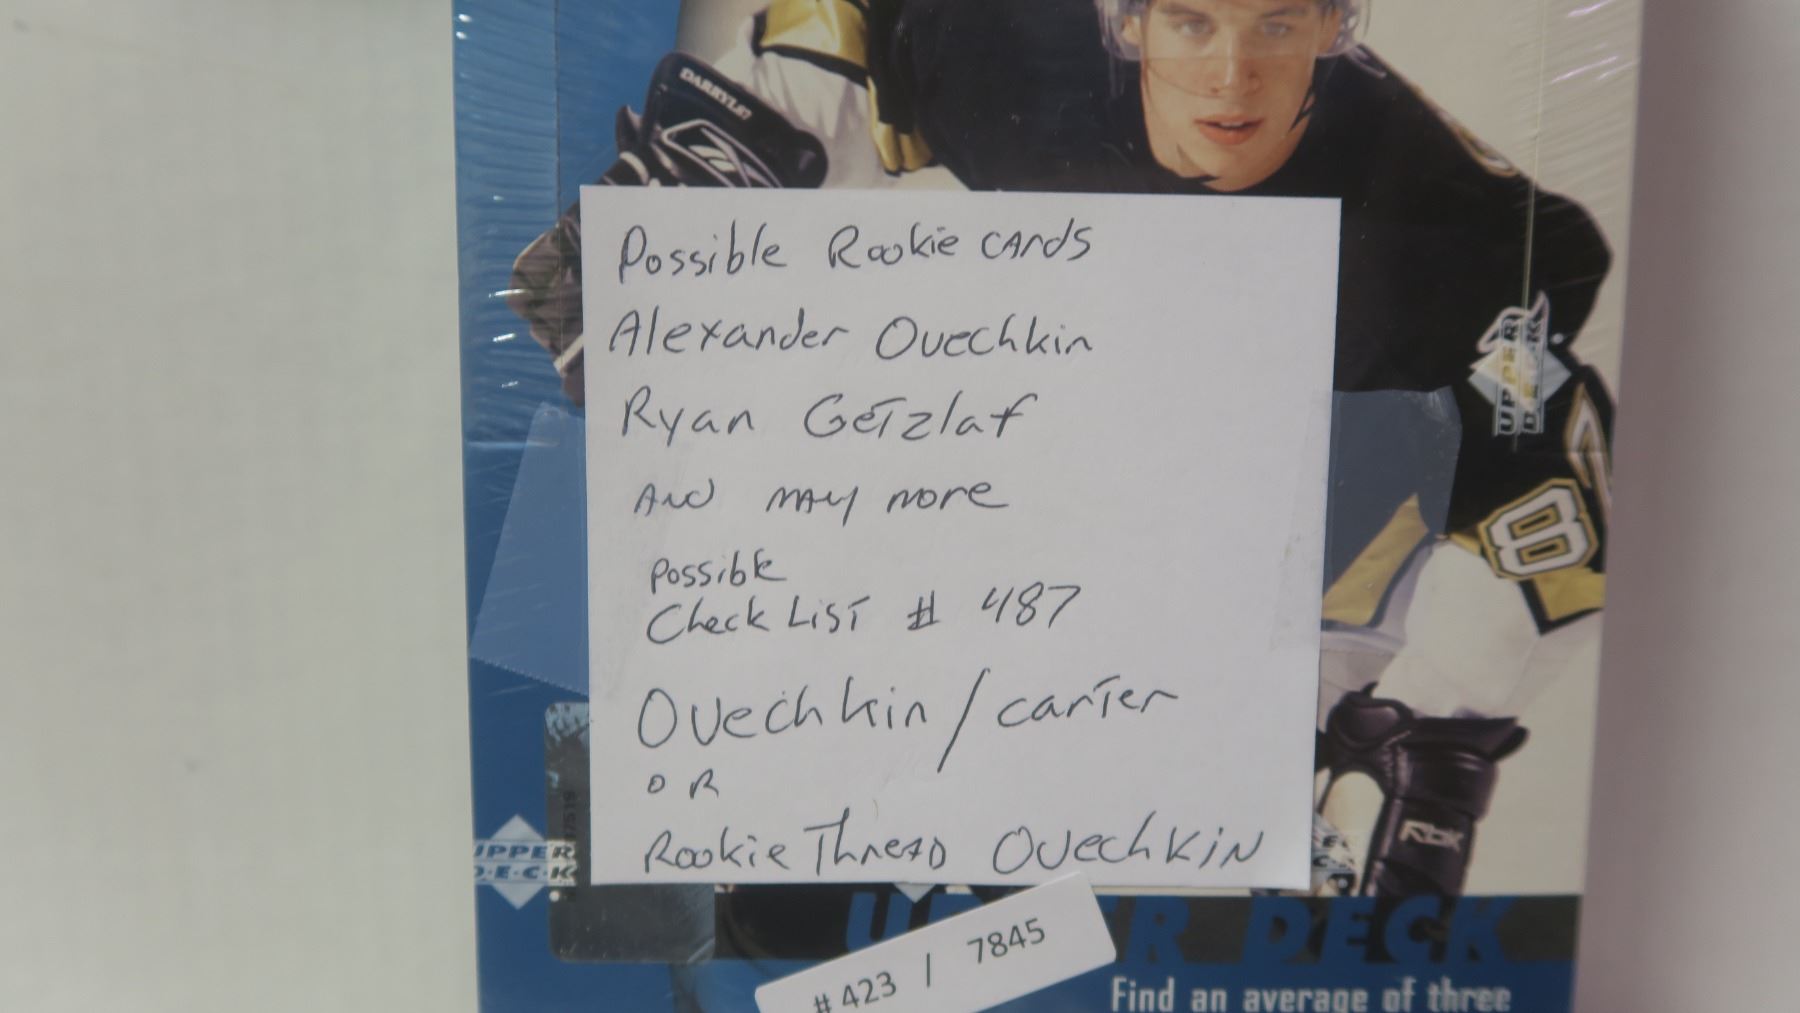 DARRYL87
Possible Rookie CArds
Alexander Ovechkin
Ryan Getzlaf
And MAy more
Possible
Check List # 487
Ovechkin / carter
OR
Rookie Thread Ovechkin
UPPER
DECK
8
RBK
UPPER
D·E·C·K
UPPER DECK
# 423 | 7845
Find an average of three